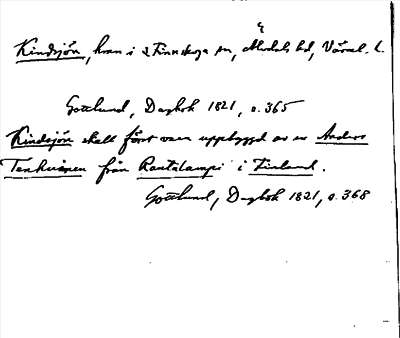 Kindsjön, kvn i S Finnskoga sn, Älvdals hd, Värml. l.
Gottlund, Dagbok 1821, s. 365
Kindsjön skall först vara uppbyggd av en Anders
Tenhuinen från Rautalampi i Finland.
Gottlund, Dagbok 1821, s. 368